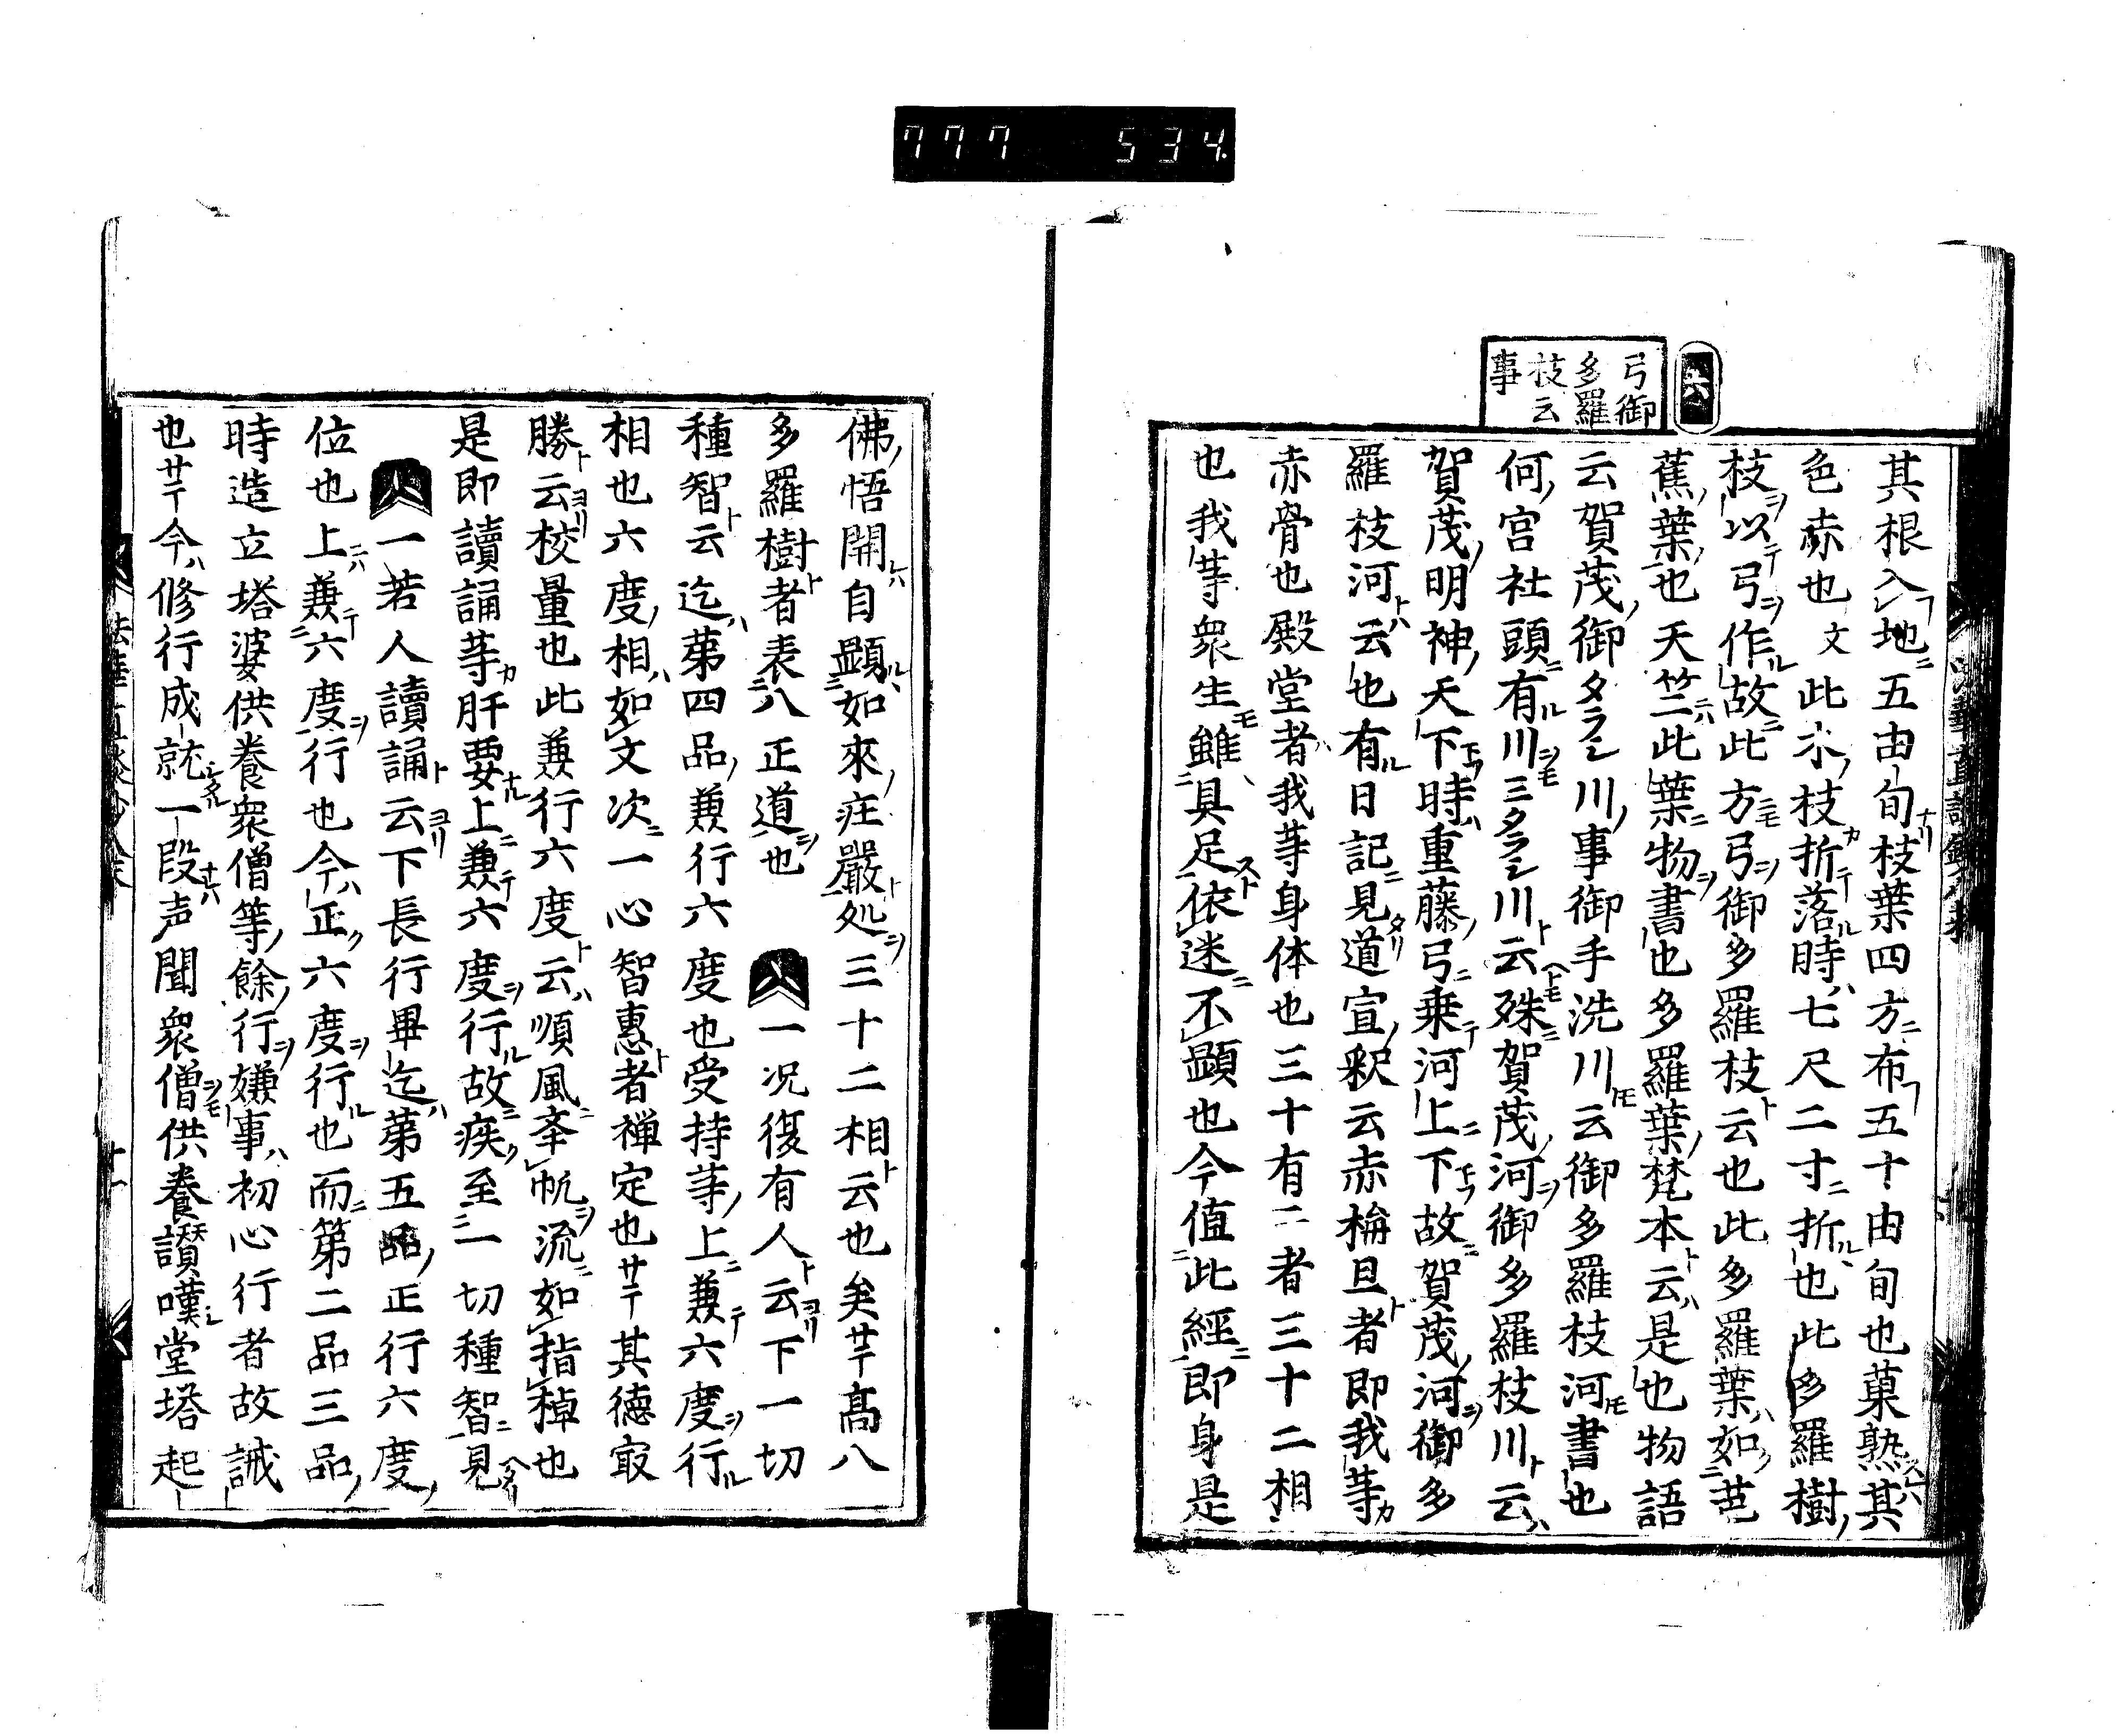 777 534.
六
弓御
多羅
枝云
事
其根入地五由旬枝葉四方布五十由旬也菓熟其
色赤也文此木枝折落時七尺二寸折也此多羅樹
枝以弓作故此方弓御多羅枝云也此多羅葉如芭
蕉葉也天竺此葉物書也多羅葉梵本云是也物語
云賀茂御タラシ川事御手洗川云御多羅枝河書也
何宮社頭有川三タラシ川云殊賀茂河御多羅枝川云
賀茂明神天下時重藤弓乗河上下故賀茂河御多
羅枝河云也有日記見道宣釈云赤栴旦者即我等
赤骨也殿堂者我等身体也三十有二者三十二相
也我等衆生雖具足依迷不顕也今値此經即身是
佛悟開自顕如來庄嚴処三十二相云也矣廿高八
多羅樹者表八正道也 一况復有人云下一切
種智云迄第四品兼行六度也受持等上兼六度行
相也六度相如文次一心智惠者禅定也其徳㝡
勝云校量也此兼行六度云順風帆流如指棹也
是即讀誦等肝要上兼六度行故疾至一切種智見
一若人讀誦云下長行畢迄第五品正行六度
位也上兼六度行也今正六度行也而第二品三品
時造立塔婆供養衆僧等餘行嫌事初心行者故誡
也今修行成就一段声聞衆僧供養讃嘆堂塔起
十一